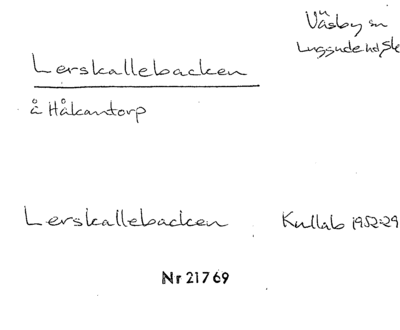 Väsby sn
Luggude hd, Sk
Lerskallebacken
å Håkantorp
Lerskallebacken Kullab 1952:29
Nr 21769